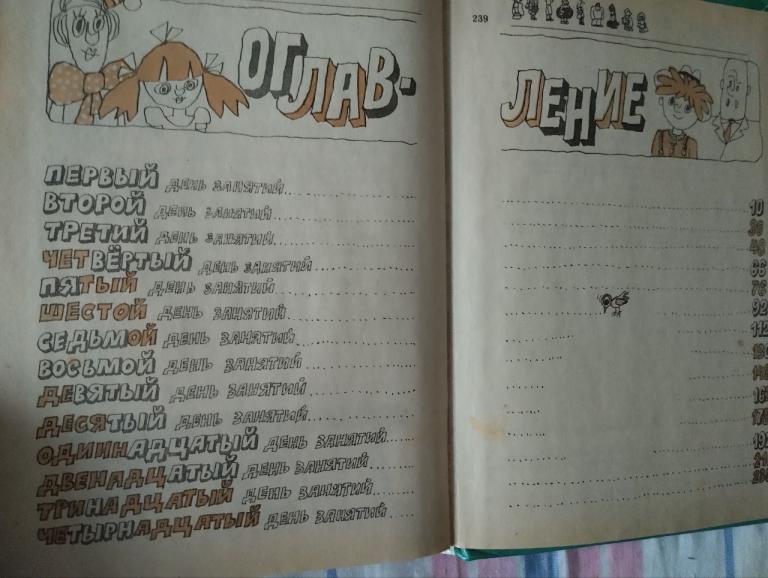 ОГЛАВ-
ПЕРВЫЙ ДЕНЬ ЗАНЯТИЙ
ВТОРОЙ ДЕНЬ ЗАНЯТИЙ
ТРЕТИЙ ДЕНЬ ЗАНЯТИЙ
ЧЕТВЁРТЫЙ ДЕНЬ ЗАНЯТИЙ
ПЯТЫЙ ДЕНЬ ЗАНЯТИЙ
ШЕСТОЙ ДЕНЬ ЗАНЯТИЙ
СЕДЬМОЙ ДЕНЬ ЗАНЯТИЙ
ВОСЬМОЙ ДЕНЬ ЗАНЯТИЙ
ДЕВЯТЫЙ ДЕНЬ ЗАНЯТИЙ
ДЕСЯТЫЙ ДЕНЬ ЗАНЯТИЙ
ОДИННАДЦАТЫЙ ДЕНЬ ЗАНЯТИЙ
ДВЕНАДЦАТЫЙ ДЕНЬ ЗАНЯТИЙ
ТРИНАДЦАТЫЙ ДЕНЬ ЗАНЯТИЙ
ЧЕТЫРНАДЦАТЫЙ ДЕНЬ ЗАНЯТИЙ
239
ЛЕНИЕ
10
66
76
92
112